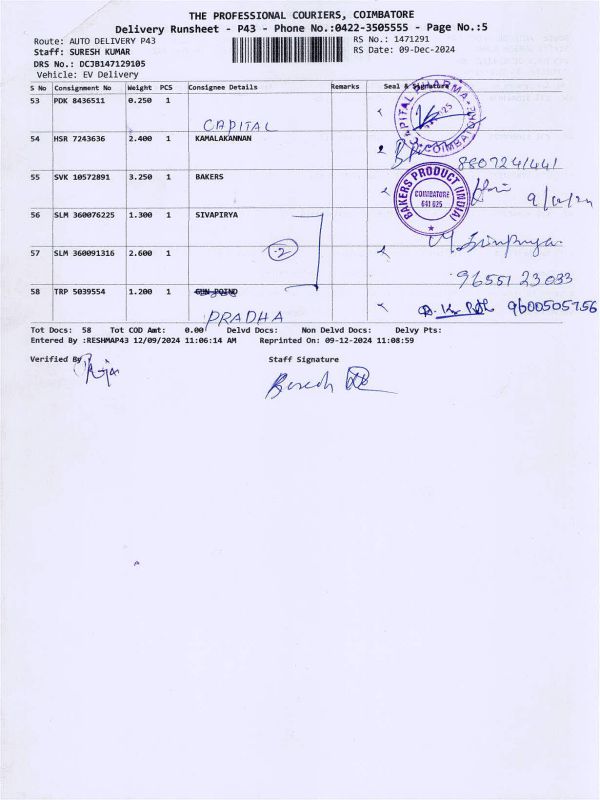 THE PROFESSIONAL COURIERS, COIMBATORE
Delivery Runsheet - P43 - Phone No.:0422-3505555 - Page No.:5
Route: AUTO DELIVERY P43 RS No.: 1471291
Staff: SURESH KUMAR RS Date: 09-Dec-2024
DRS No.: DCJB147129105
Vehicle: EV Delivery
S No Consignment No Weight PCS Consignee Details Remarks Seal & Signature
53 PDK 8436511 0.250 1
CAPITAL
CAPITAL PHARMA COIMBATORE
54 HSR 7243636 2.400 1 KAMALAKANNAN
8807241441
55 SVK 10572891 3.250 1 BAKERS
BAKERS PRODUCT (INDIA) COIMBATORE 641 025
9/12/24
56 SLM 360076225 1.300 1 SIVAPIRYA
57 SLM 360091316 2.600 1
2
9655123033
58 TRP 5039554 1.200 1 GUN POIND
PRADHA
9600505756
Tot Docs: 58 Tot COD Amt: 0.00 Delvd Docs: Non Delvd Docs: Delvy Pts:
Entered By :RESHMAP43 12/09/2024 11:06:14 AM Reprinted On: 09-12-2024 11:08:59
Verified By Staff Signature